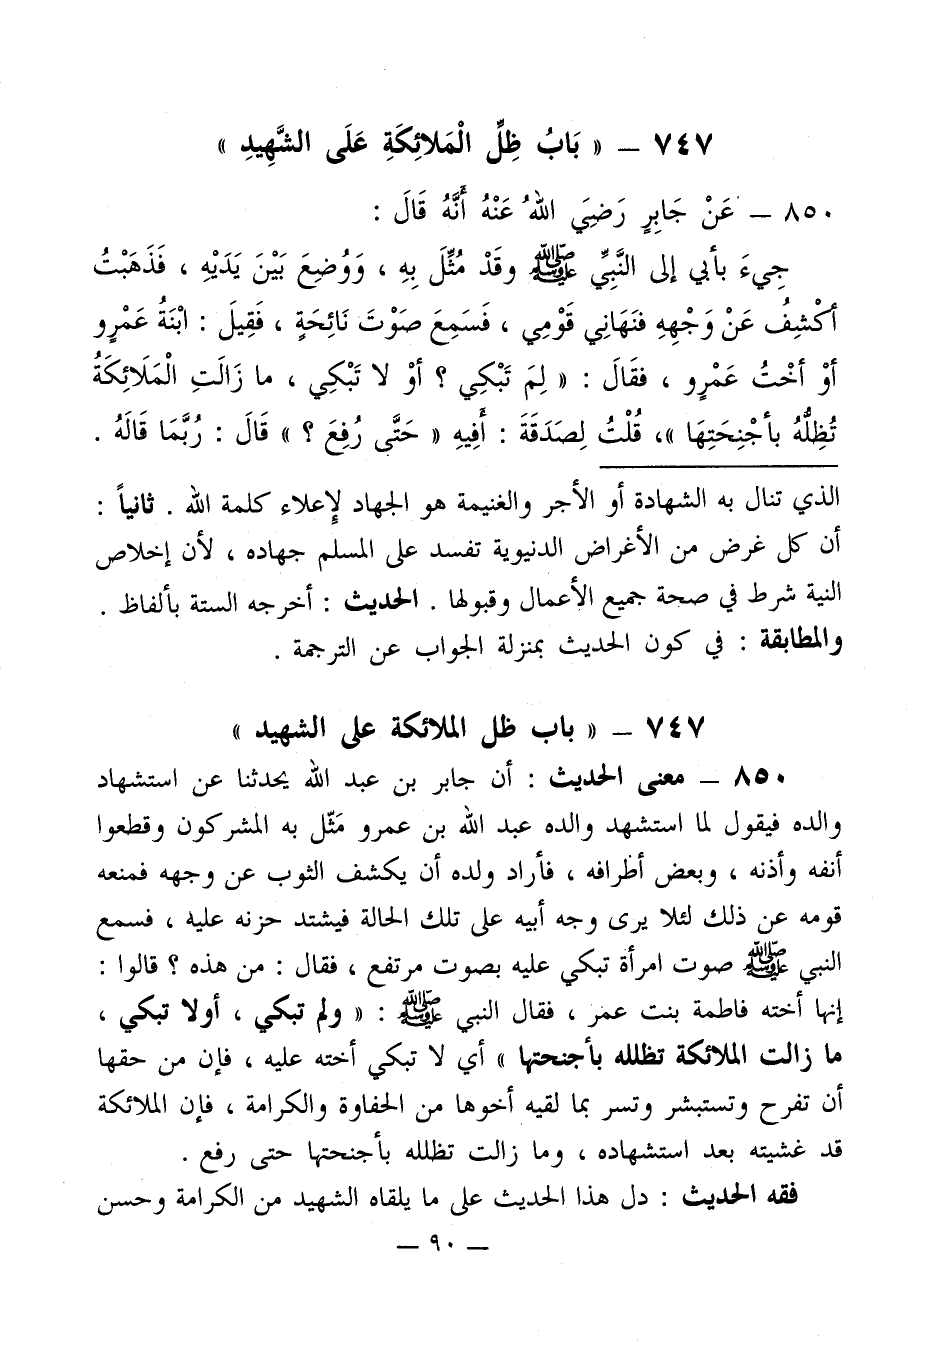 ٧٤٧ – « بَابُ ظِلِّ الْمَلائِكَةِ عَلَى الشَّهِيدِ »
٨٥٠ – عَنْ جَابِرٍ رَضِيَ اللهُ عَنْهُ أَنَّهُ قَالَ :
جِيءَ بأبي إلى النَّبِيِّ ﷺ وقَدْ مُثِّلَ بِهِ ، وَوُضِعَ بَيْنَ يَدَيْهِ ، فَذَهَبْتُ
أكْشِفُ عَنْ وَجْهِهِ فنَهَانِي قَوْمِي ، فَسَمِعَ صَوْتَ نَائِحَةٍ ، فَقِيلَ : ابْنَةُ عَمْرٍو
أوْ أخْتُ عَمْرٍو ، فقَالَ : « لِمَ تَبْكِي ؟ أوْ لا تَبْكِي ، ما زَالَتِ الْمَلَائِكَةُ
تُظِلُّهُ بأجْنِحَتِهَا »، قُلْتُ لِصَدَقَةَ : أَفِيهِ « حَتَّى رُفِعَ ؟ » قَالَ : رُبَّمَا قَالَهُ .
الذي تنال به الشهادة أو الأجر والغنيمة هو الجهاد لإعلاء كلمة الله . ثانياً :
أن كل غرض من الأغراض الدنيوية تفسد على المسلم جهاده ، لأن إخلاص
النية شرط في صحة جميع الأعمال وقبولها . الحديث : أخرجه الستة بألفاظ .
والمطابقة : في كون الحديث بمنزلة الجواب عن الترجمة .
٧٤٧ – « باب ظل الملائكة على الشهيد »
٨٥٠ – معنى الحديث : أن جابر بن عبد الله يحدثنا عن استشهاد
والده فيقول لما استشهد والده عبد الله بن عمرو مَثّل به المشركون وقطعوا
أنفه وأذنه ، وبعض أطرافه ، فأراد ولده أن يكشف الثوب عن وجهه فمنعه
قومه عن ذلك لئلا يرى وجه أبيه على تلك الحالة فيشتد حزنه عليه ، فسمع
النبي ﷺ صوت امرأة تبكي عليه بصوت مرتفع ، فقال : من هذه ؟ قالوا :
إنها أخته فاطمة بنت عمر ، فقال النبي ﷺ : « ولم تبكي ، أولا تبكي ،
ما زالت الملائكة تظلله بأجنحتها » أي لا تبكي أخته عليه ، فإن من حقها
أن تفرح وتستبشر وتسر بما لقيه أخوها من الحفاوة والكرامة ، فإن الملائكة
قد غشيته بعد استشهاده ، وما زالت تظلله بأجنحتها حتى رفع .
فقه الحديث : دل هذا الحديث على ما يلقاه الشهيد من الكرامة وحسن
– ٩٠ –